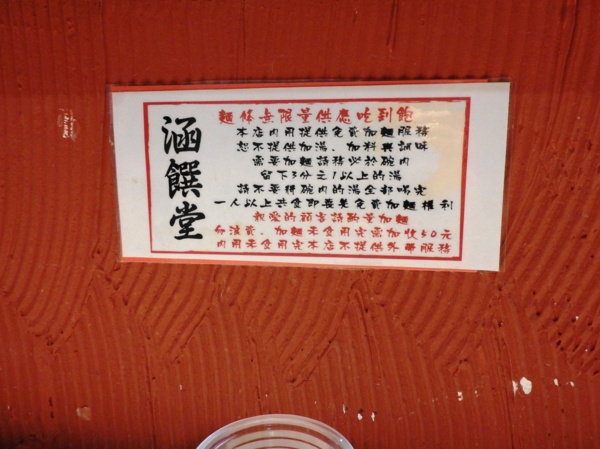 涵饌堂
麵條無限量供應吃到飽
本店內用提供免費加麵服務
恕不提供加湯、加料與調味
需要加麵請務必於碗內
留下3分之1以上的湯
請不要將碗內的湯全部喝完
一人以上共食即喪失免費加麵權利
親愛的顧客請酌量加麵
勿浪費、加麵未食用完需加收50元
內用未食用完本店不提供外帶服務